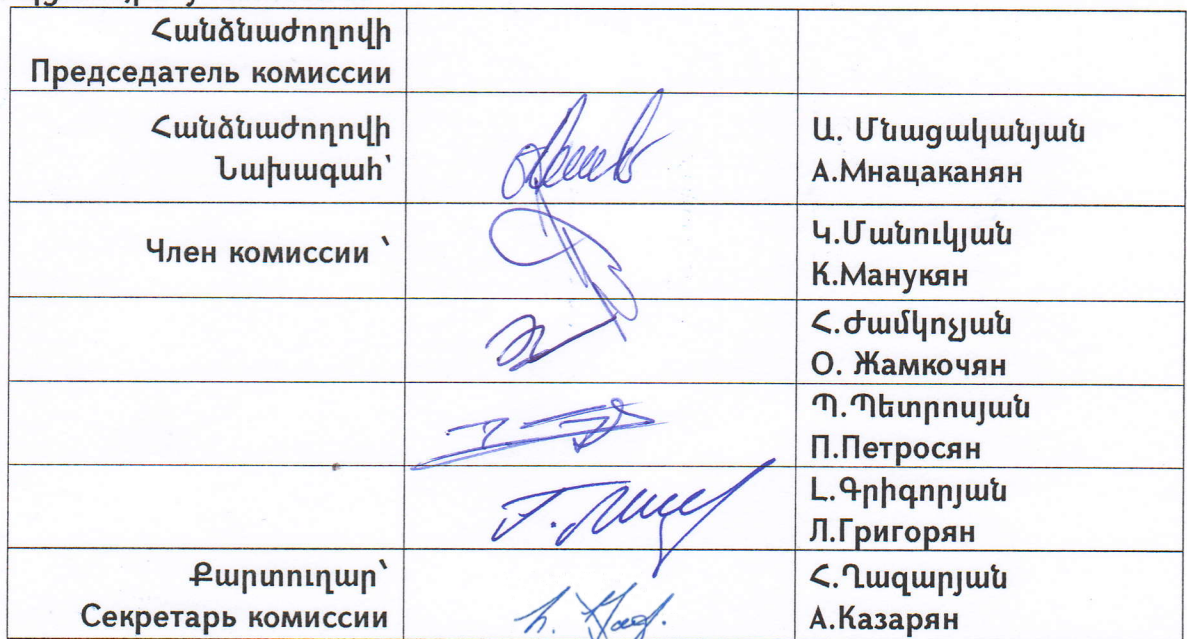 Հանձնաժողովի
Председатель комиссии
Հանձնաժողովի
Նախագահ՝
Ա. Մնացականյան
А.Мнацаканян
Член комиссии ՝
Կ.Մանուկյան
К.Манукян
Հ.Ժամկոչյան
О. Жамкочян
Պ.Պետրոսյան
П.Петросян
Լ.Գրիգորյան
Л.Григорян
Քարտուղար՝
Секретарь комиссии
Հ.Ղազարյան
А.Казарян